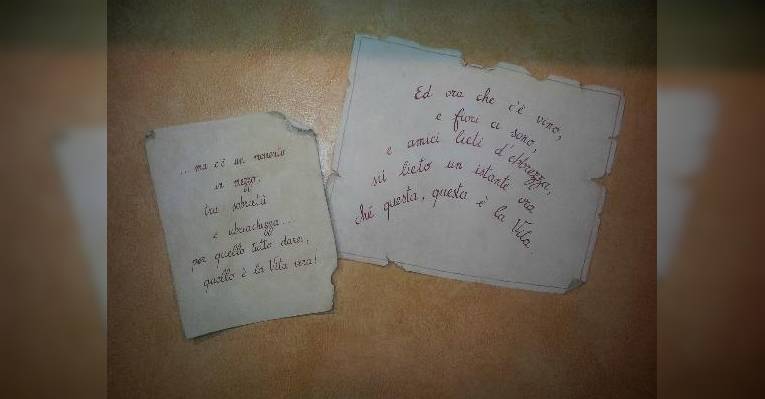 ... ma c'è un momento
in mezzo,
tra sobrietà
e ubriachezza...
per quello tutto darei,
quello è la Vita vera!
Ed ora che c'è vino,
e fiori ci sono,
e amici lieti d'ebbrezza,
sii lieto un istante ora
ché questa, questa è la Vita.